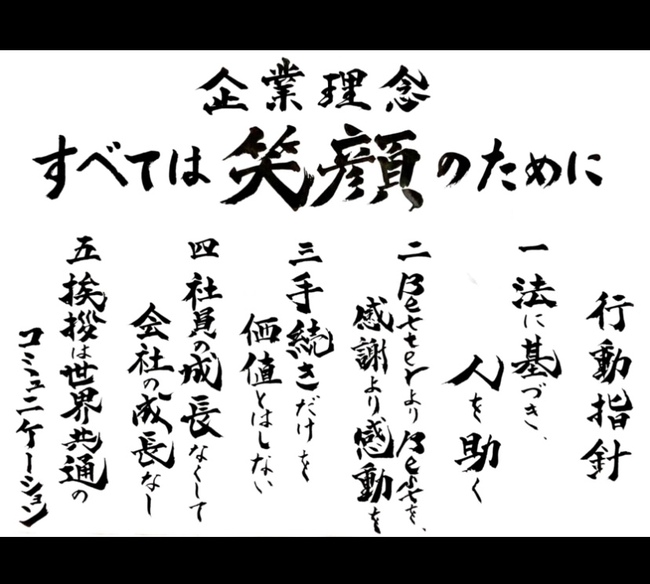 企業理念
すべては笑顔のために
行動指針
一 法に基づき、
人を助く
二 BetterよりBestを、
感謝より感動を
三 手続きだけを
価値とはしない
四 社員の成長なくして
会社の成長なし
五 挨拶は世界共通の
コミュニケーション